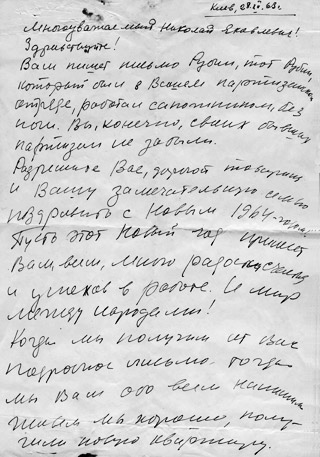 Киев, 28.XII.63г.
Многоуважаемый Николай Яковлевич!
Здравствуйте!
Вам пишет письмо Рубин, тот Рубин,
который был в Вашем партизанском
отряде, работал сапожником, без
ноги. Вы, конечно, своих бывших
партизан не забыли.
Разрешите Вас, дорогой товарищ
и Вашу замечательную семью
поздравить с Новым 1964-годом.
Пусть этот Новый год принесет
Вам, всем, много радости, счастья
и успехов в работе. И мир
между народами!
Когда мы получим от Вас
подробное письмо тогда
мы Вам обо всем напишем
Живем мы хорошо, полу-
чили новую квартиру.